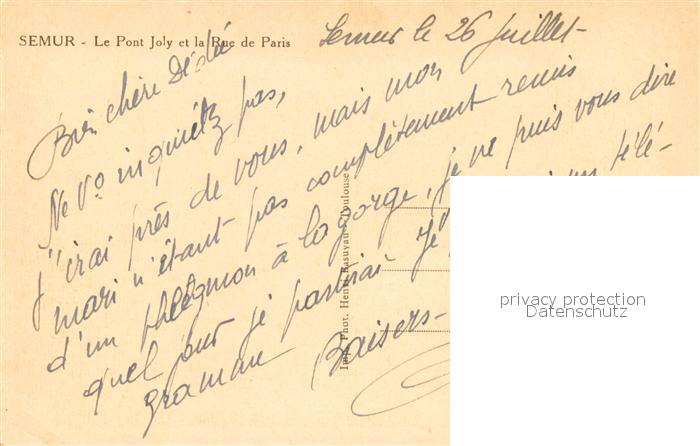 SEMUR - Le Pont Joly et la Rue de Paris
Semur le 26 Juillet-
Bien chère Dédée
Ne Vs inquiétez pas,
J'irai près de vous, mais mon
mari n'étant pas complètement remis
d'un phlegmon à la gorge, je ne puis vous dire
quel jour je partirai Je un télé-
gramme Baisers-
Imp. Phot. Henri Basuyau - Toulouse
privacy protection
Datenschutz